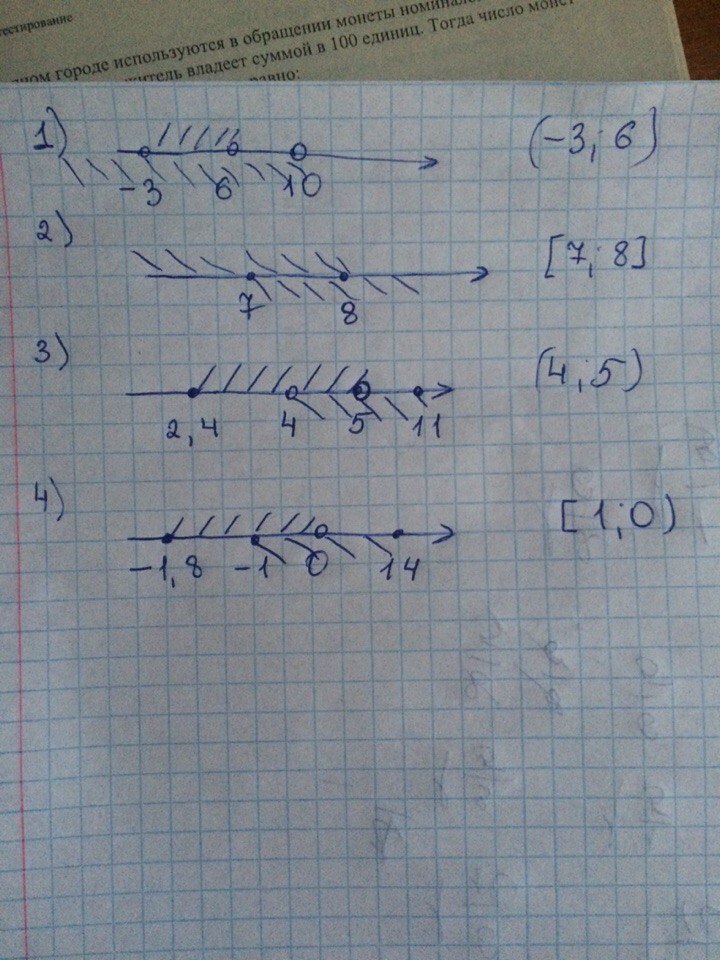 тестирование
ном городе используются в обращении монеты
житель владеет суммой в 100 единиц. Тогда число монет
равно:
1)
-3 6 10
(-3; 6]
2)
7 8
[7; 8]
3)
2,4 4 5 11
(4; 5)
4)
-1,8 -1 0 14
[1; 0)